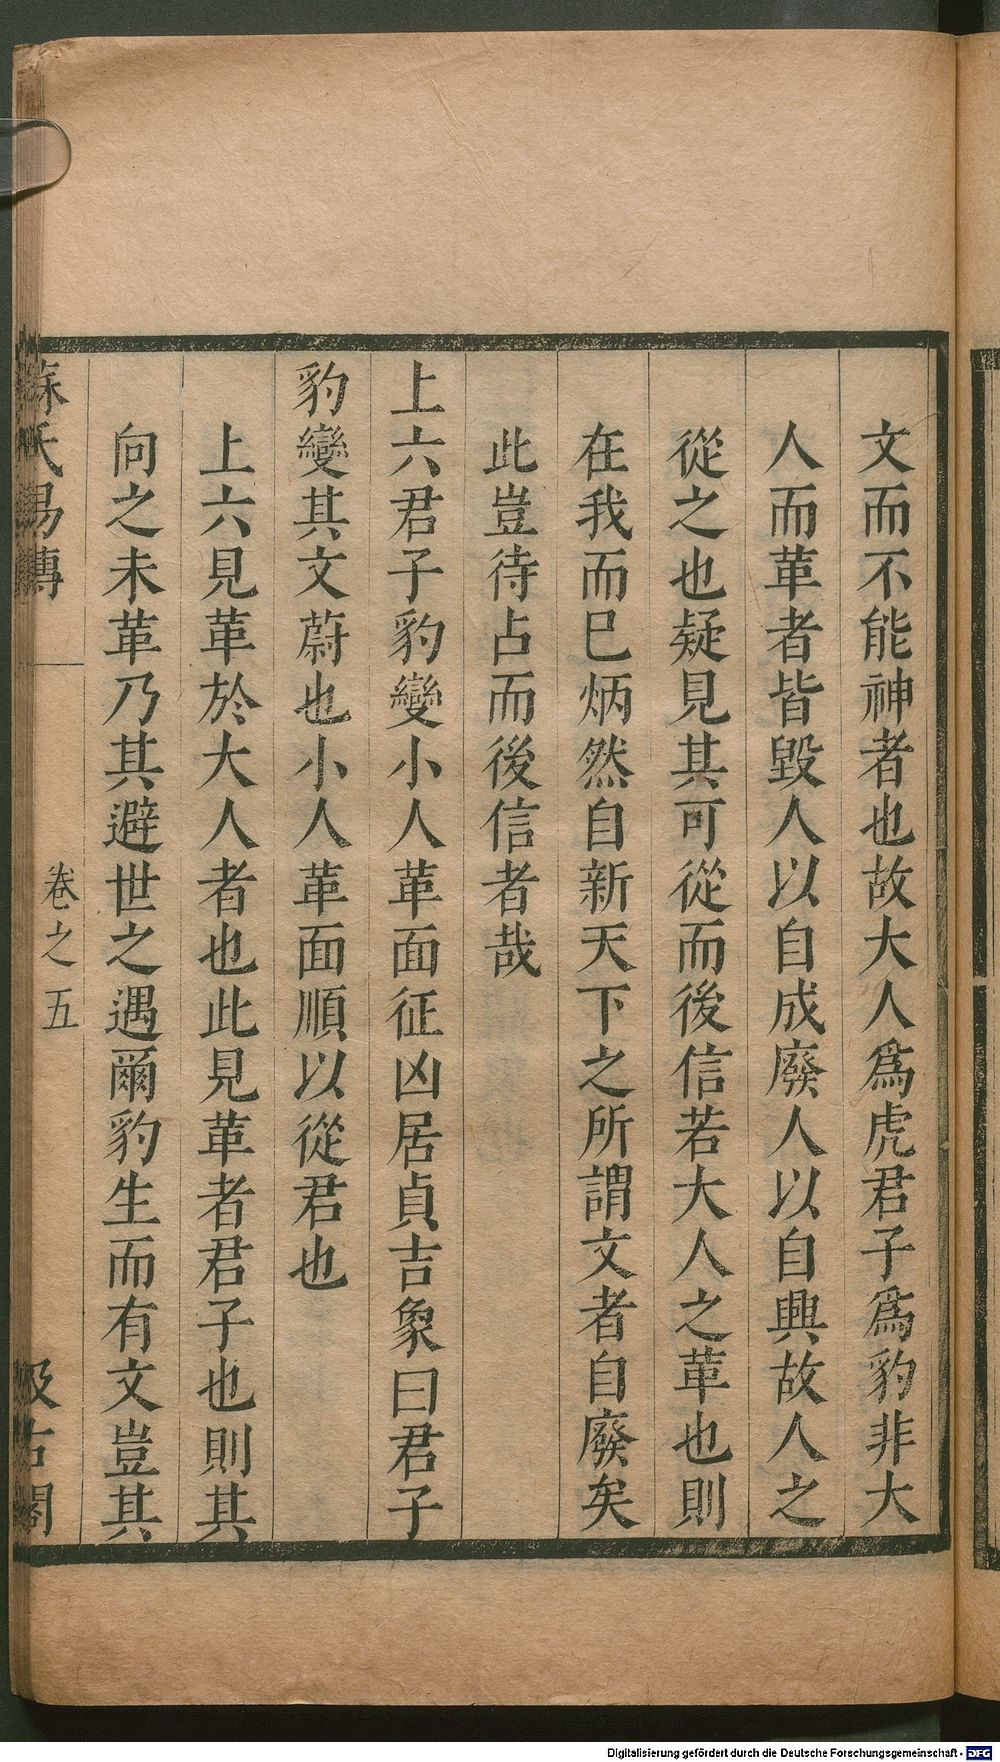 文而不能神者也故大人爲虎君子爲豹非大
人而革者皆毀人以自成廢人以自興故人之
從之也疑見其可從而後信若大人之革也則
在我而巳炳然自新天下之所謂文者自廢矣
此豈待占而後信者哉
上六君子豹變小人革面征凶居貞吉象曰君子
豹變其文蔚也小人革面順以從君也
上六見革於大人者也此見革者君子也則其
向之未革乃其避世之遇爾豹生而有文豈其
蘇氏易傳
卷之五
汲古閣
Digitalisierung gefördert durch die Deutsche Forschungsgemeinschaft - DFG